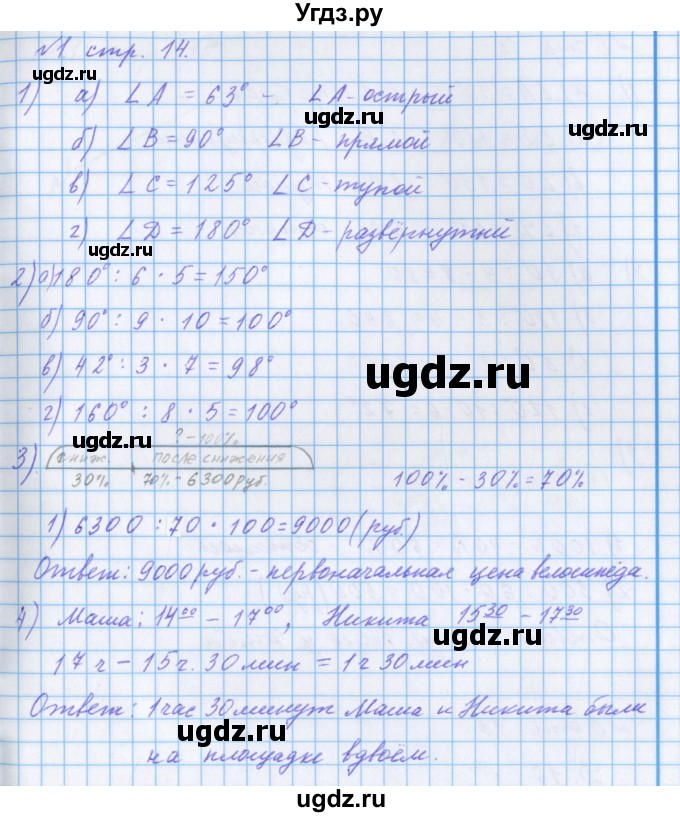 Угдз.ру
№1 стр. 14.
ugdz.ru
1) а) ∠A = 63° - ∠A - острый
ugdz.ru
б) ∠B = 90° ∠B - прямой
в) ∠C = 125° ∠C - тупой
г) ∠D = 180° ∠D - развёрнутый
ugdz.ru
2) а) 180° : 6 · 5 = 150°
б) 90° : 9 · 10 = 100°
в) 42° : 3 · 7 = 98°
ugdz.ru
г) 160° : 8 · 5 = 100°
? - 100%
3) сниж. после снижения
30% 70% - 6300 руб. 100% - 30% = 70%
1) 6300 : 70 · 100 = 9000 (руб.)
ugdz.ru
Ответ: 9000 руб. - первоначальная цена велосипеда.
4) Маша: 14⁰⁰ - 17⁰⁰, Никита 15³⁰ - 17³⁰
ugdz.ru
17 ч - 15 ч. 30 мин = 1 ч 30 мин
Ответ: 1 час 30 минут Маша и Никита были
ugdz.ru
на площадке вдвоём.
ugdz.ru
ugdz.ru